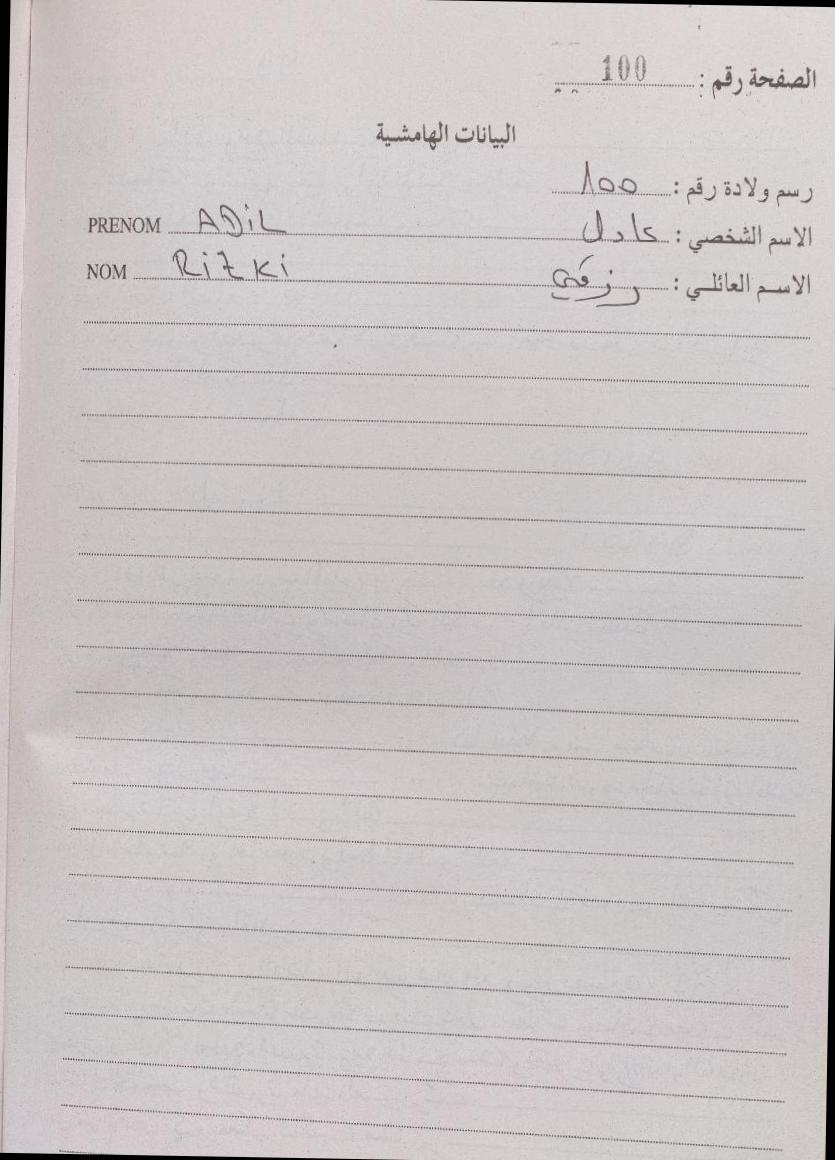 الصفحة رقم : 100
البيانات الهامشية
رسم ولادة رقم : 100
الاسم الشخصي : عادل PRENOM ADiL
الاسم العائلي : رزقي NOM RizKi